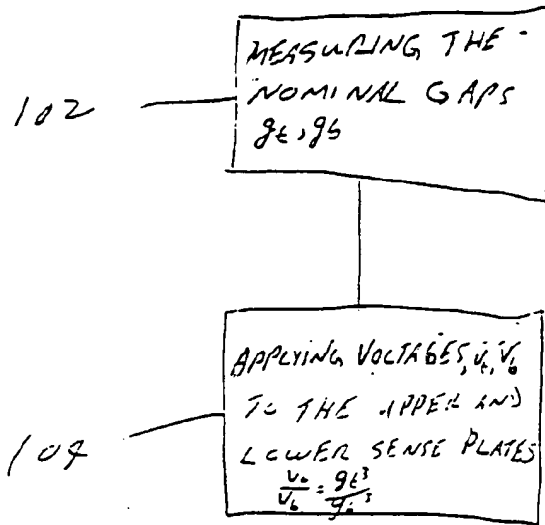 102
MEASURING THE
NOMINAL GAPS
gt, gb
104
APPLYING VOLTAGES, Vt, Vb
TO THE UPPER AND
LOWER SENSE PLATES
gt³